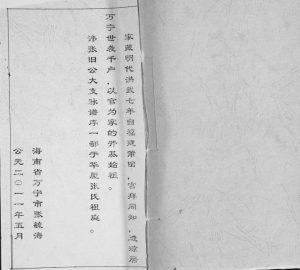 家藏明代洪武七年自福建莆田，官拜同知，遗琼居
万宁世袭千户，以官为家的开基始祖。
讳张旧公大支脉谱序一部于华屋张氏祖庭。
海南省万宁市张毓海
公元二〇一一年五月